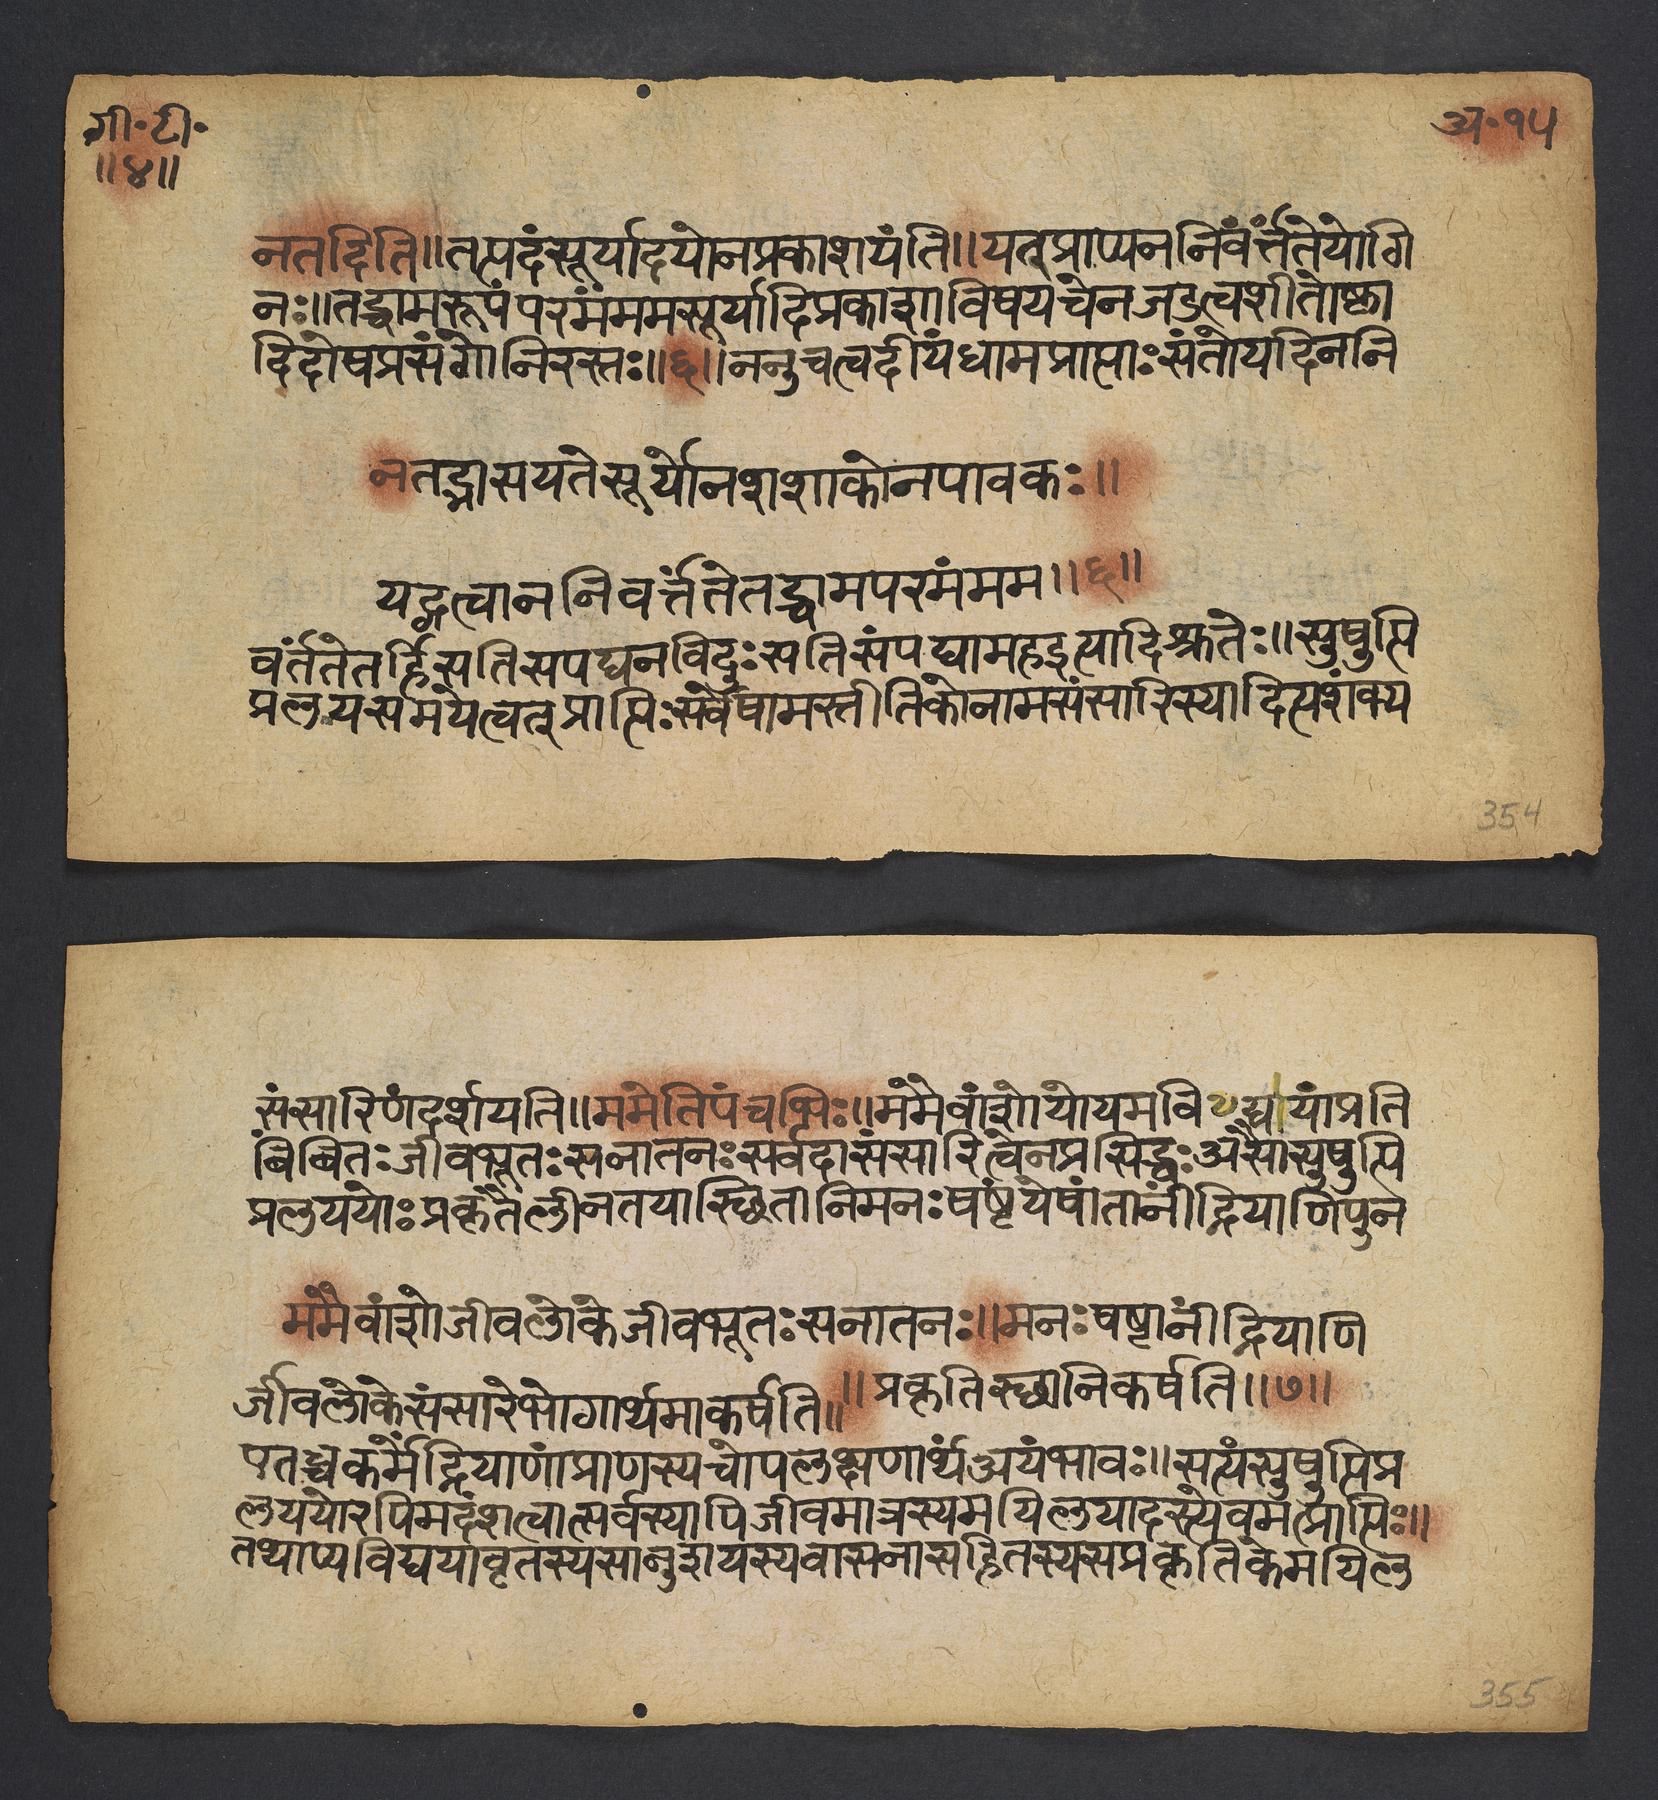 गी॰टी॰
॥४॥
अ॰१५
नतदिति॥तत्पदंसूर्यादयोनप्रकाशयंति॥यत्प्राप्यननिवर्त्तंतेयोगि
नः॥तद्धामरूपंपरमंममसूर्यादिप्रकाशाविषयत्वेनजडत्वशीतोष्णा
दिदोषप्रसंगोनिरस्तः॥६॥ननुचत्वदीयंधामप्राप्ताःसंतोयदिननि
नतद्भासयतेसूर्योनशशांकोनपावकः॥
यद्गत्वाननिवर्त्तंतेतद्धामपरमंमम॥६॥
वर्तंतेतर्हिसतिसंपद्यनविदुःसतिसंपद्यामहइत्यादिश्रुतेः॥सुषुप्ति
प्रलयसमयेत्वत्प्राप्तिःसर्वेषामस्तीतिकोनामसंसारिस्यादित्यशंक्य
354
संसारिणंदर्शयति॥ममेतिपंचभिः॥ममैवांशोयोयमविद्यायांप्रति
बिंबितःजीवभूतःसनातनःसर्वदासंसारित्वेनप्रसिद्धःअसौसुषुप्ति
प्रलययोःप्रकृतौलीनतयास्थितानिमनःषष्ठंयेषांतानींद्रियाणिपुन
ममैवांशोजीवलोकेजीवभूतःसनातनः॥मनःषष्ठानींद्रियाणि
॥प्रकृतिस्थानिकर्षति॥७॥
र्जीवलोकेसंसारेभोगार्थमाकर्षति॥
एतच्चकर्मेंद्रियाणांप्राणस्यचोपलक्षणार्थंअयंभावः॥सत्यंसुषुप्तिप्र
लययोरपिमदंशत्वात्सर्वस्यापिजीवमात्रस्यमयिलयादस्त्येवमत्प्राप्तिः॥
तथाप्यविद्ययावृतस्यसानुशयस्यवासनासहितस्यसप्रकृतिकेमयिल
355